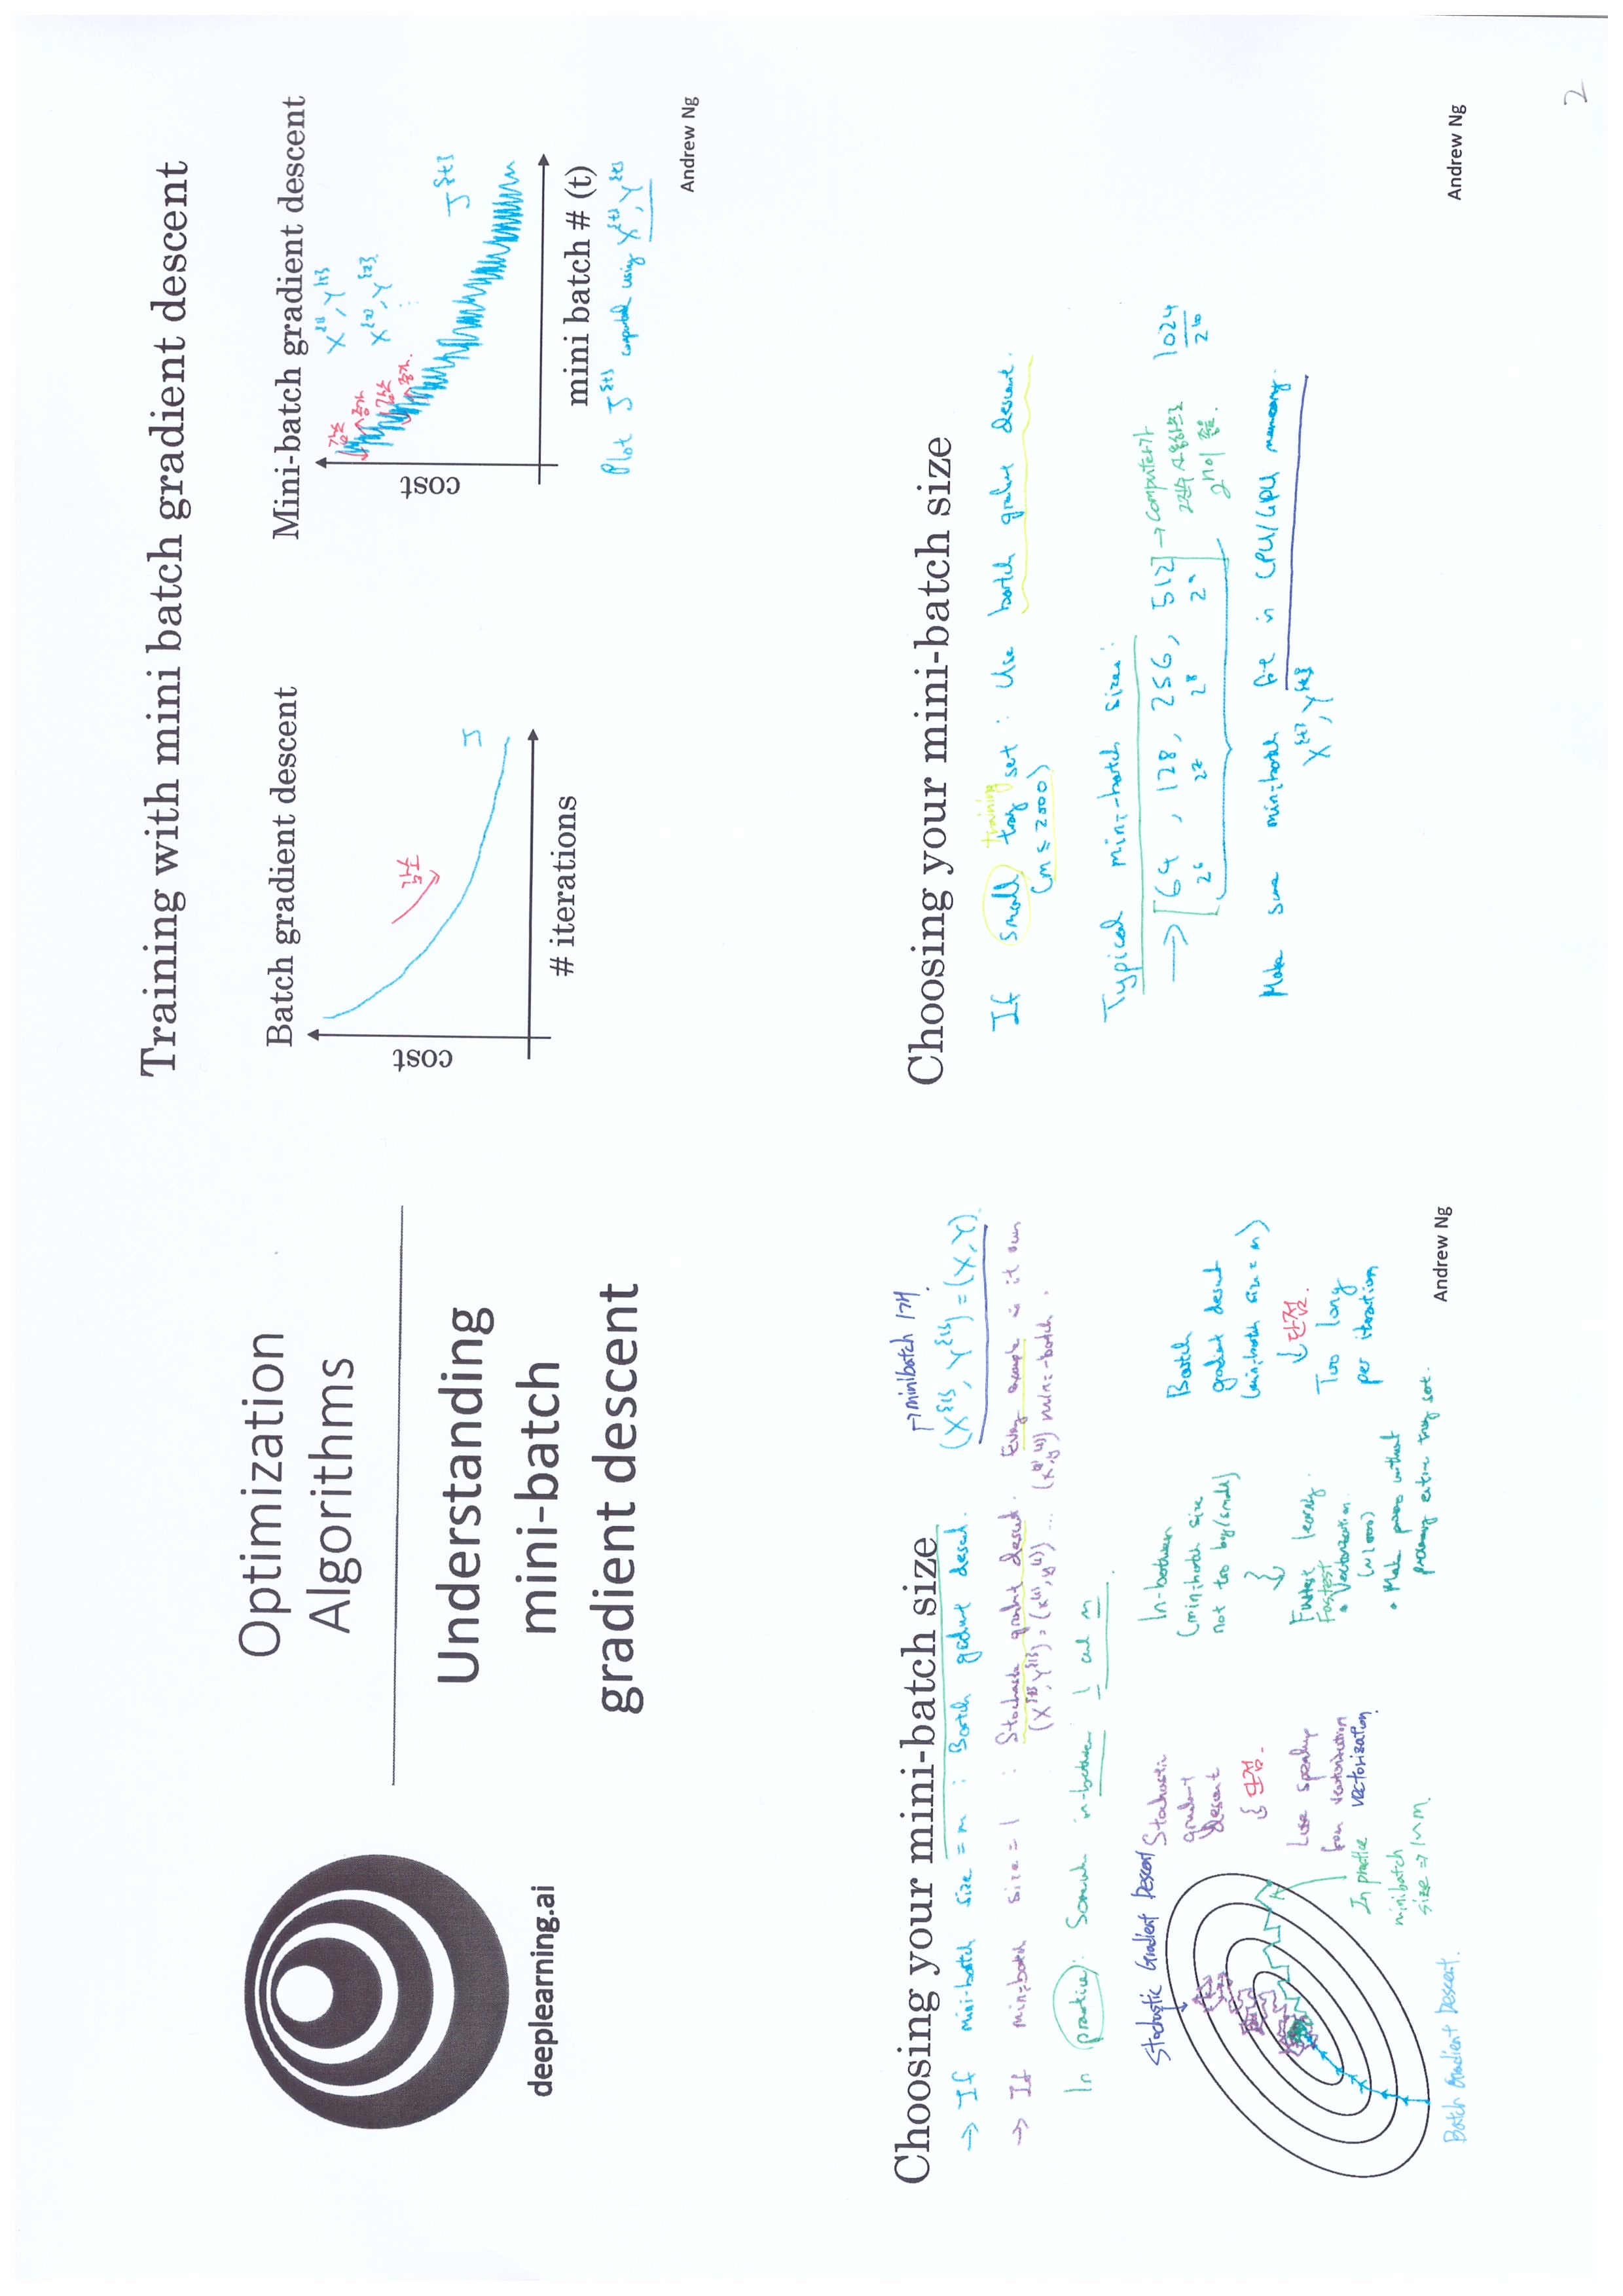 Optimization
Algorithms
Understanding
mini-batch
gradient descent
deeplearning.ai
Training with mini batch gradient descent
Batch gradient descent
cost
감소
J
# iterations
Mini-batch gradient descent
X^{1}, Y^{1}
X^{2}, Y^{2}
감소
증가
감소
증가
cost
J^{t}
mini batch # (t)
Plot J^{t} computed using X^{t}, Y^{t}
Andrew Ng
Choosing your mini-batch size
→ minibatch 1개
→ If mini-batch size = m : Batch gradient descent. (X^{1}, Y^{1}) = (X, Y)
→ If mini-batch size = 1 : Stochastic gradient descent. Every example is it own
mini-batch.
In practice: in-between 1 and m
Stochastic Gradient Descent
Stochastic
gradient
descent
단점
Lose speedup
from vectorization
vectorization
In practice
minibatch
size ⇒ 1~m
Batch Gradient Descent.
In-between
(minibatch size
not too big/small)
Fastest learning.
Fastest
• Vectorization
(~1000)
• Make without
processing entire set.
Batch
gradient descent
(mini-batch size = m)
↓ 단점.
Too long
per iteration
Andrew Ng
Choosing your mini-batch size
training
If small set : Use batch gradient descent.
(m ≤ 2000)
Typical mini-batch sizes:
→ [64, 128, 256, 512] → Computer가 1024
2^6 2^7 2^8 2^9 2진수 사용하므로 2^10
2^n이 좋음.
Make sure minibatch fit in CPU/GPU memory.
X^{t}, Y^{t}
Andrew Ng
2